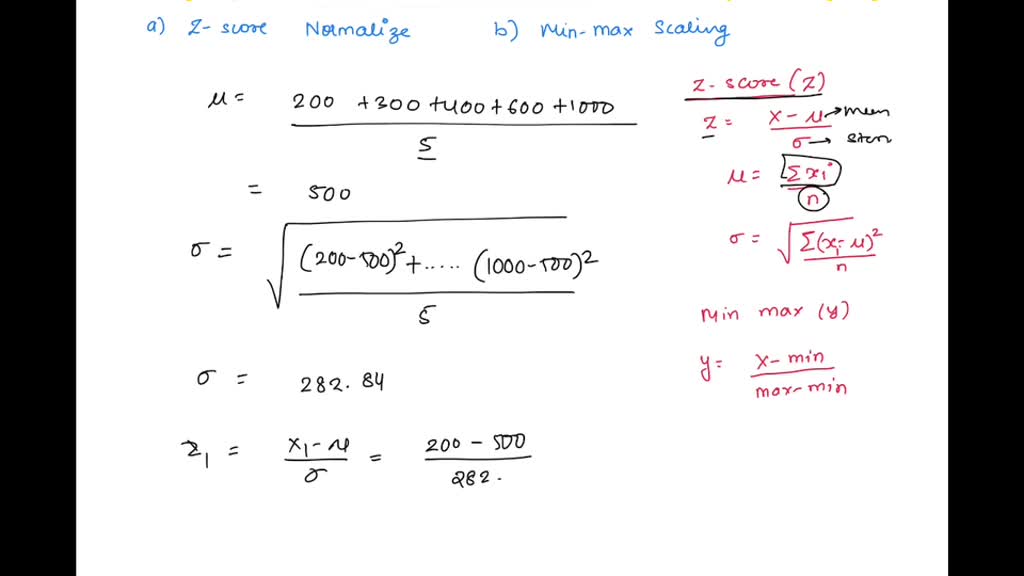 a) Z-score Normalize b) Min-max Scaling
μ = 200 + 300 + 400 + 600 + 1000 / 5
= 500
σ = √((200-500)² + ..... (1000-500)² / 5)
σ = 282.84
z₁ = x₁ - μ / σ = 200 - 500 / 282.
z-score (z)
z = x - μ → mean / σ →
μ = Σxi / n
σ = √(Σ(xi - μ)² / n)
Min max (y)
y = x - min / max - min